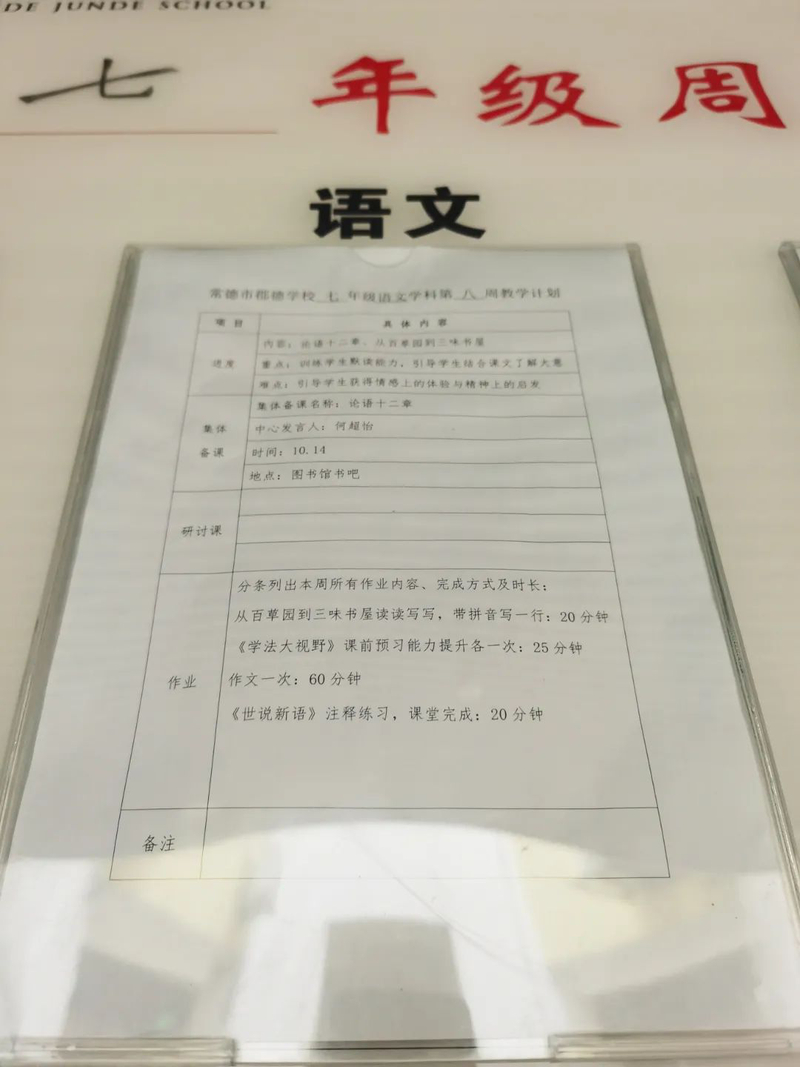 DE JUNDE SCHOOL
七 年级周
语文
常德市郡德学校 七 年级语文学科第 八 周教学计划
项目 具体内容
进度
内容：论语十二章、从百草园到三味书屋
重点：训练学生默读能力，引导学生结合课文了解大意
难点：引导学生获得情感上的体验与精神上的启发
集体备课
集体备课名称：论语十二章
中心发言人：何超怡
时间：10.14
地点：图书馆书吧
研讨课
作业
分条列出本周所有作业内容、完成方式及时长：
从百草园到三味书屋读读写写，带拼音写一行：20分钟
《学法大视野》课前预习能力提升各一次：25分钟
作文一次：60分钟
《世说新语》注释练习，课堂完成：20分钟
备注